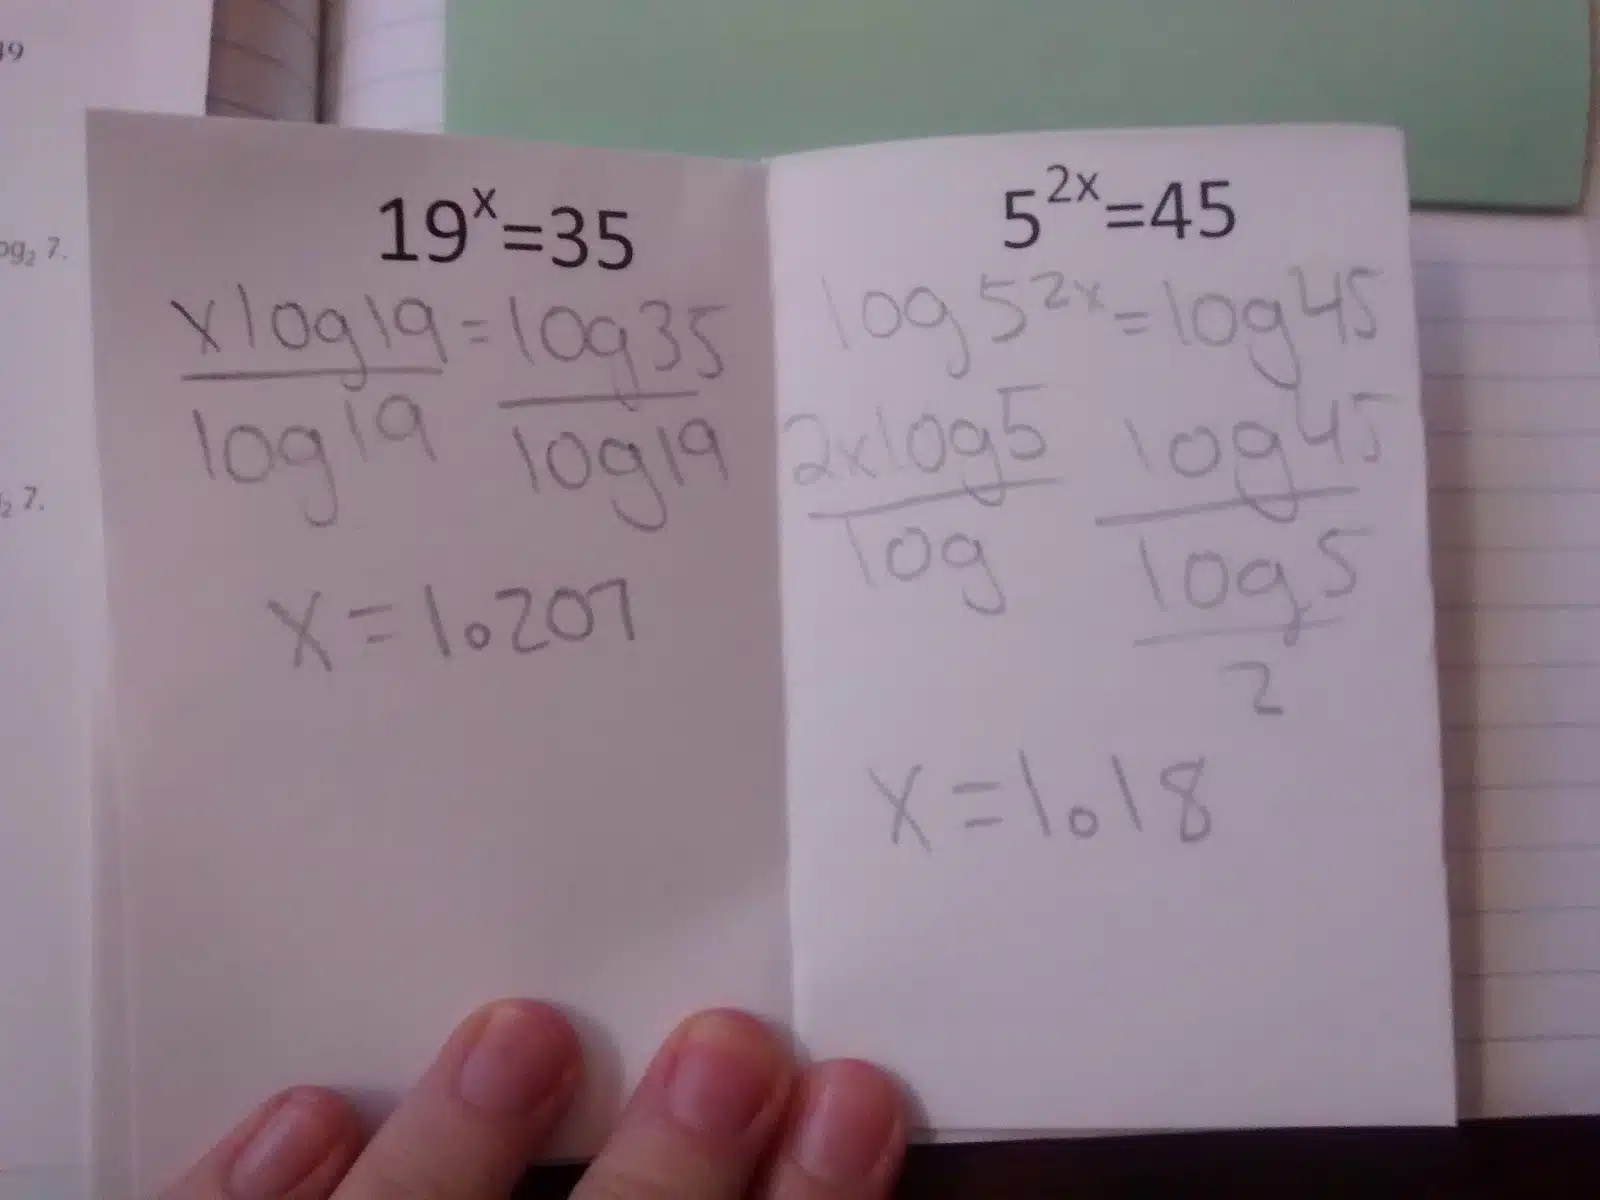 19
og₂ 7.
₂ 7.
19ˣ=35
x log 19 = log 35
log 19 log 19
x = 1.207
5²ˣ=45
log 5²ˣ = log 45
2x log 5 log 45
log log 5
2
x = 1.18